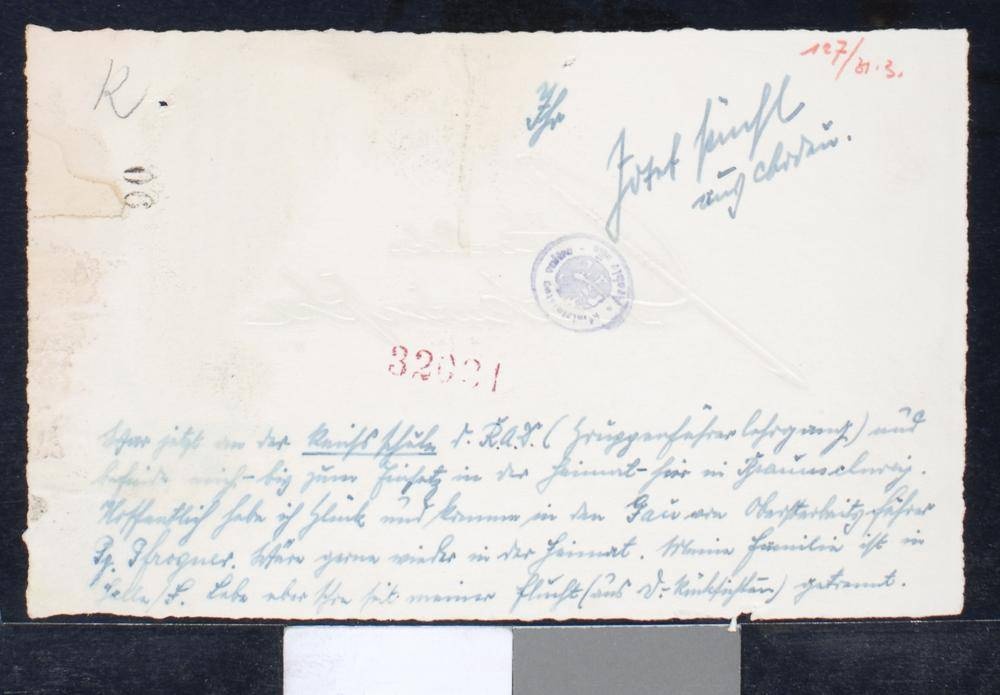 K.
127/31.3.
Ihr
Josef
aus
00
32001
War jetzt an der Reichsschule d. R.A.D. (Gruppenführerlehrgang) und
befinde mich bis zum Einsatz in der Heimat hier in Braunschweig.
Hoffentlich habe ich Glück und komme in den Gau von Oberstarbeitsführer
Pg. Pfrogner. Wäre gerne wieder in der Heimat. Meine Familie ist in
Halle/S. Lebe aber schon seit meiner Flucht (aus D.-Rücksichten) getrennt.